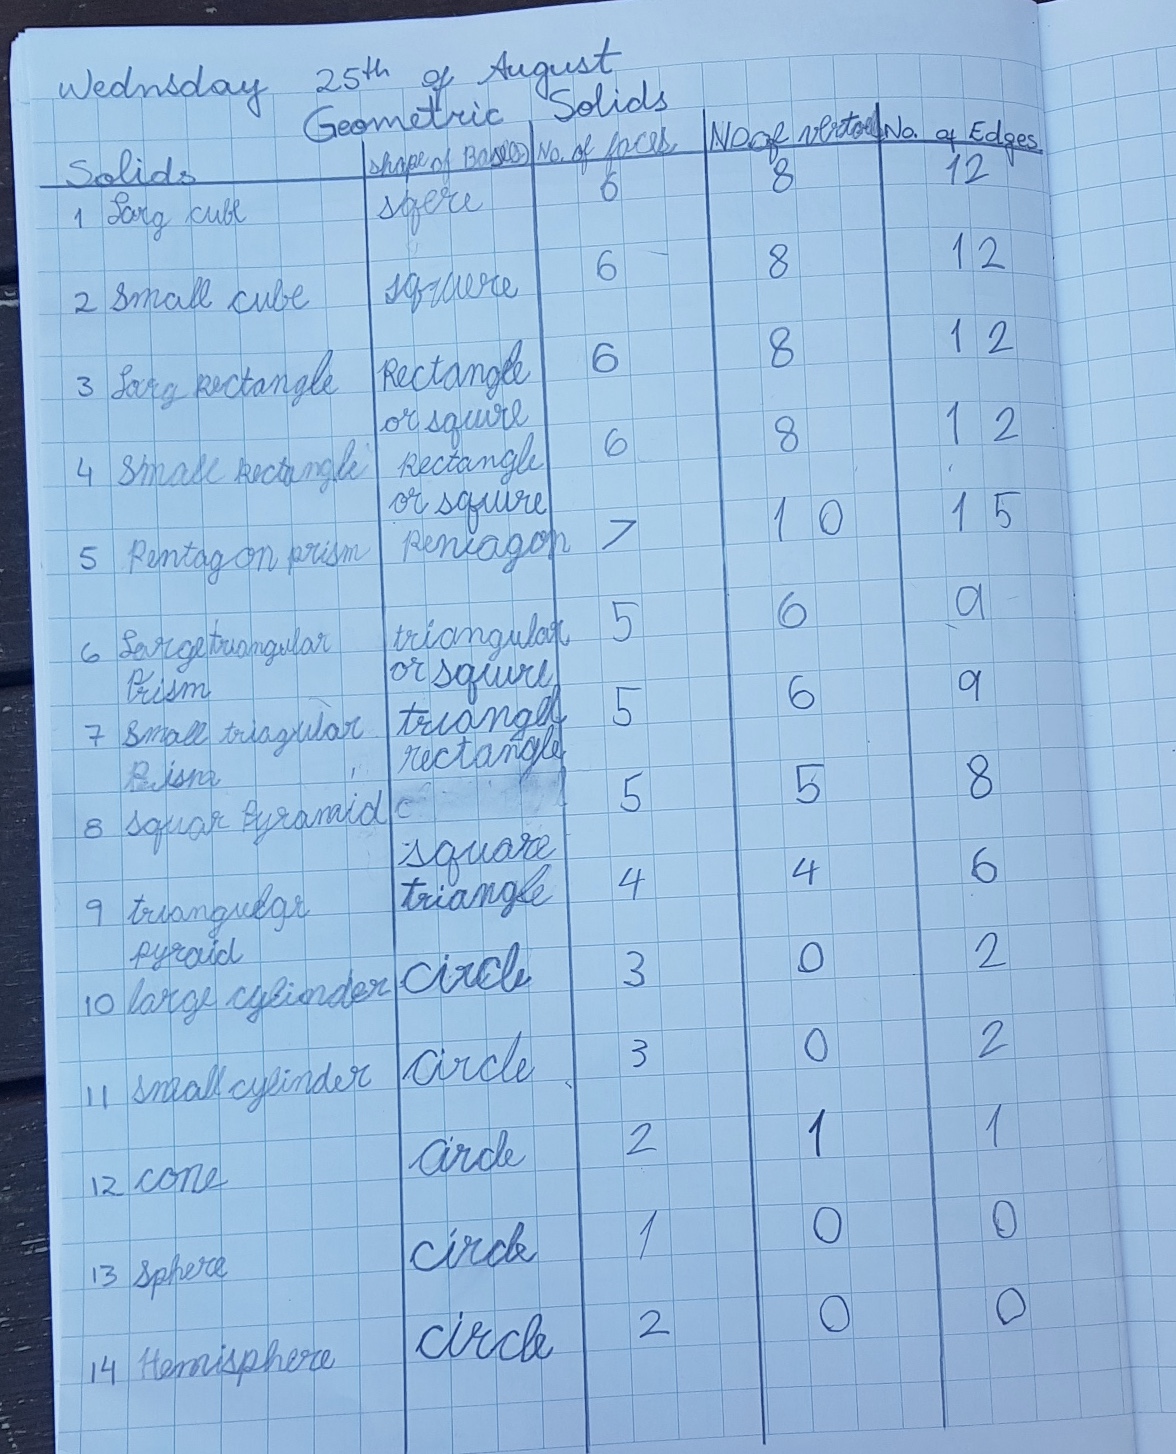 Wednsday 25th of August
Geometric Solids
Solids shape of Base(s) No. of faces No of No. of Edges
1 Larg cube sqere 6 8 12
2 Small cube squere 6 8 12
3 Larg Rectangle Rectangle 6 8 12
or squire
4 Small Rectangle Rectangle 6 8 12
or squire
5 Pentagon prism Pentagon 7 10 15
6 Large triangular triangular 5 6 9
Prism or squire
7 Small triagular triangle 5 6 9
rectangle
8 squar Pyramid 5 5 8
square
9 triangular triangle 4 4 6
pyraid
10 large cylinder circle 3 0 2
11 small cylinder circle 3 0 2
12 cone circle 2 1 1
13 sphere circle 1 0 0
14 Hemisphere circle 2 0 0